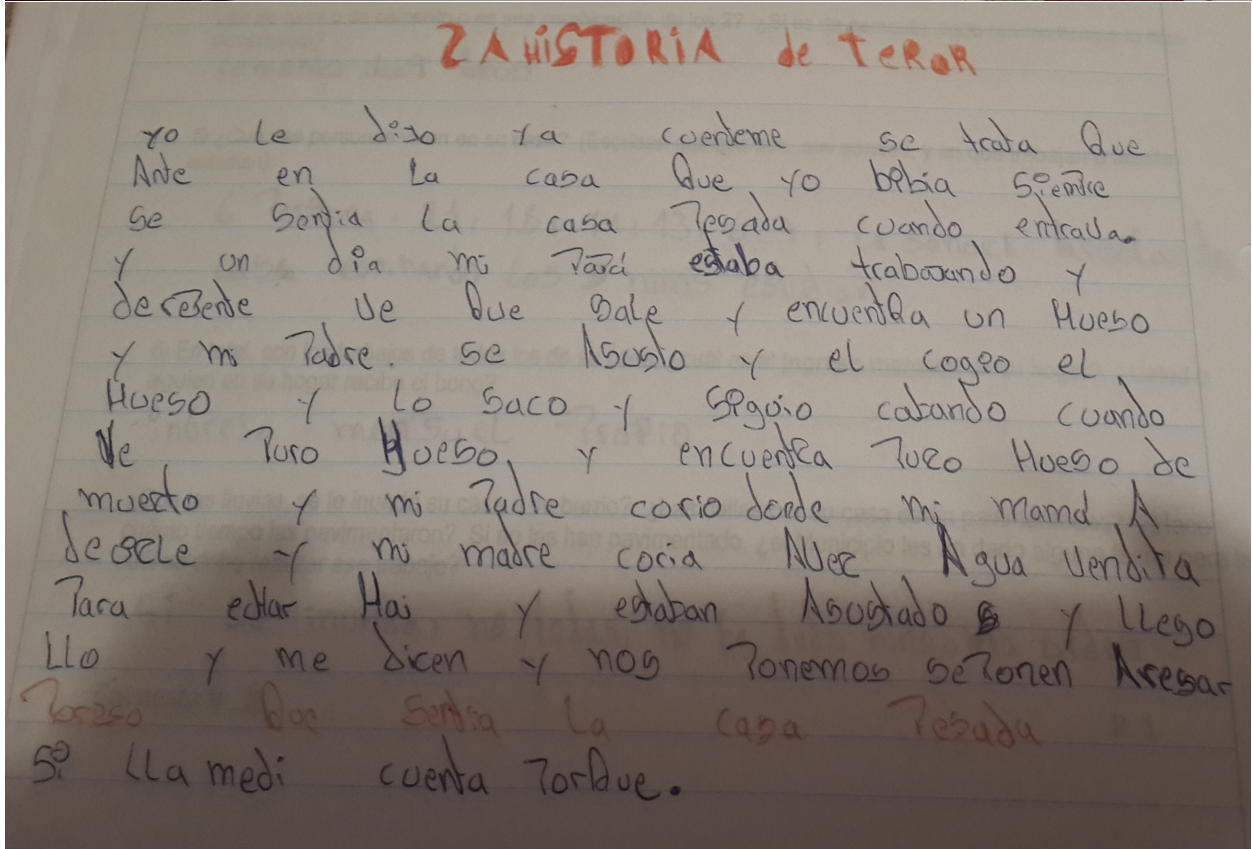 LA HISTORIA de teROR
yo le dixo ya cuenteme se trata Que
Ante en la casa Que yo bibia siempre
se sentia la casa Pesada cuando entrava.
y un dia mi Papá estaba trabaxando y
derepente ve Que sale y encuentRa un Hueso
y mi Padre. se Asusto y el cogeo el
Hueso y lo saco y siguio cabando cuando
Ve Puro Hueso, y encuentra Puro Hueso de
muerto y mi Padre corio donde mi mamá A
decirle y mi madre coria Auer Agua vendita
Para echar Hai y estaban Asustado s y llego
LLo y me dicen y nos Ponemos se Ponen Aresar
Poreso Que sentia la casa Pesada
si lla medi cuenta PorQue.